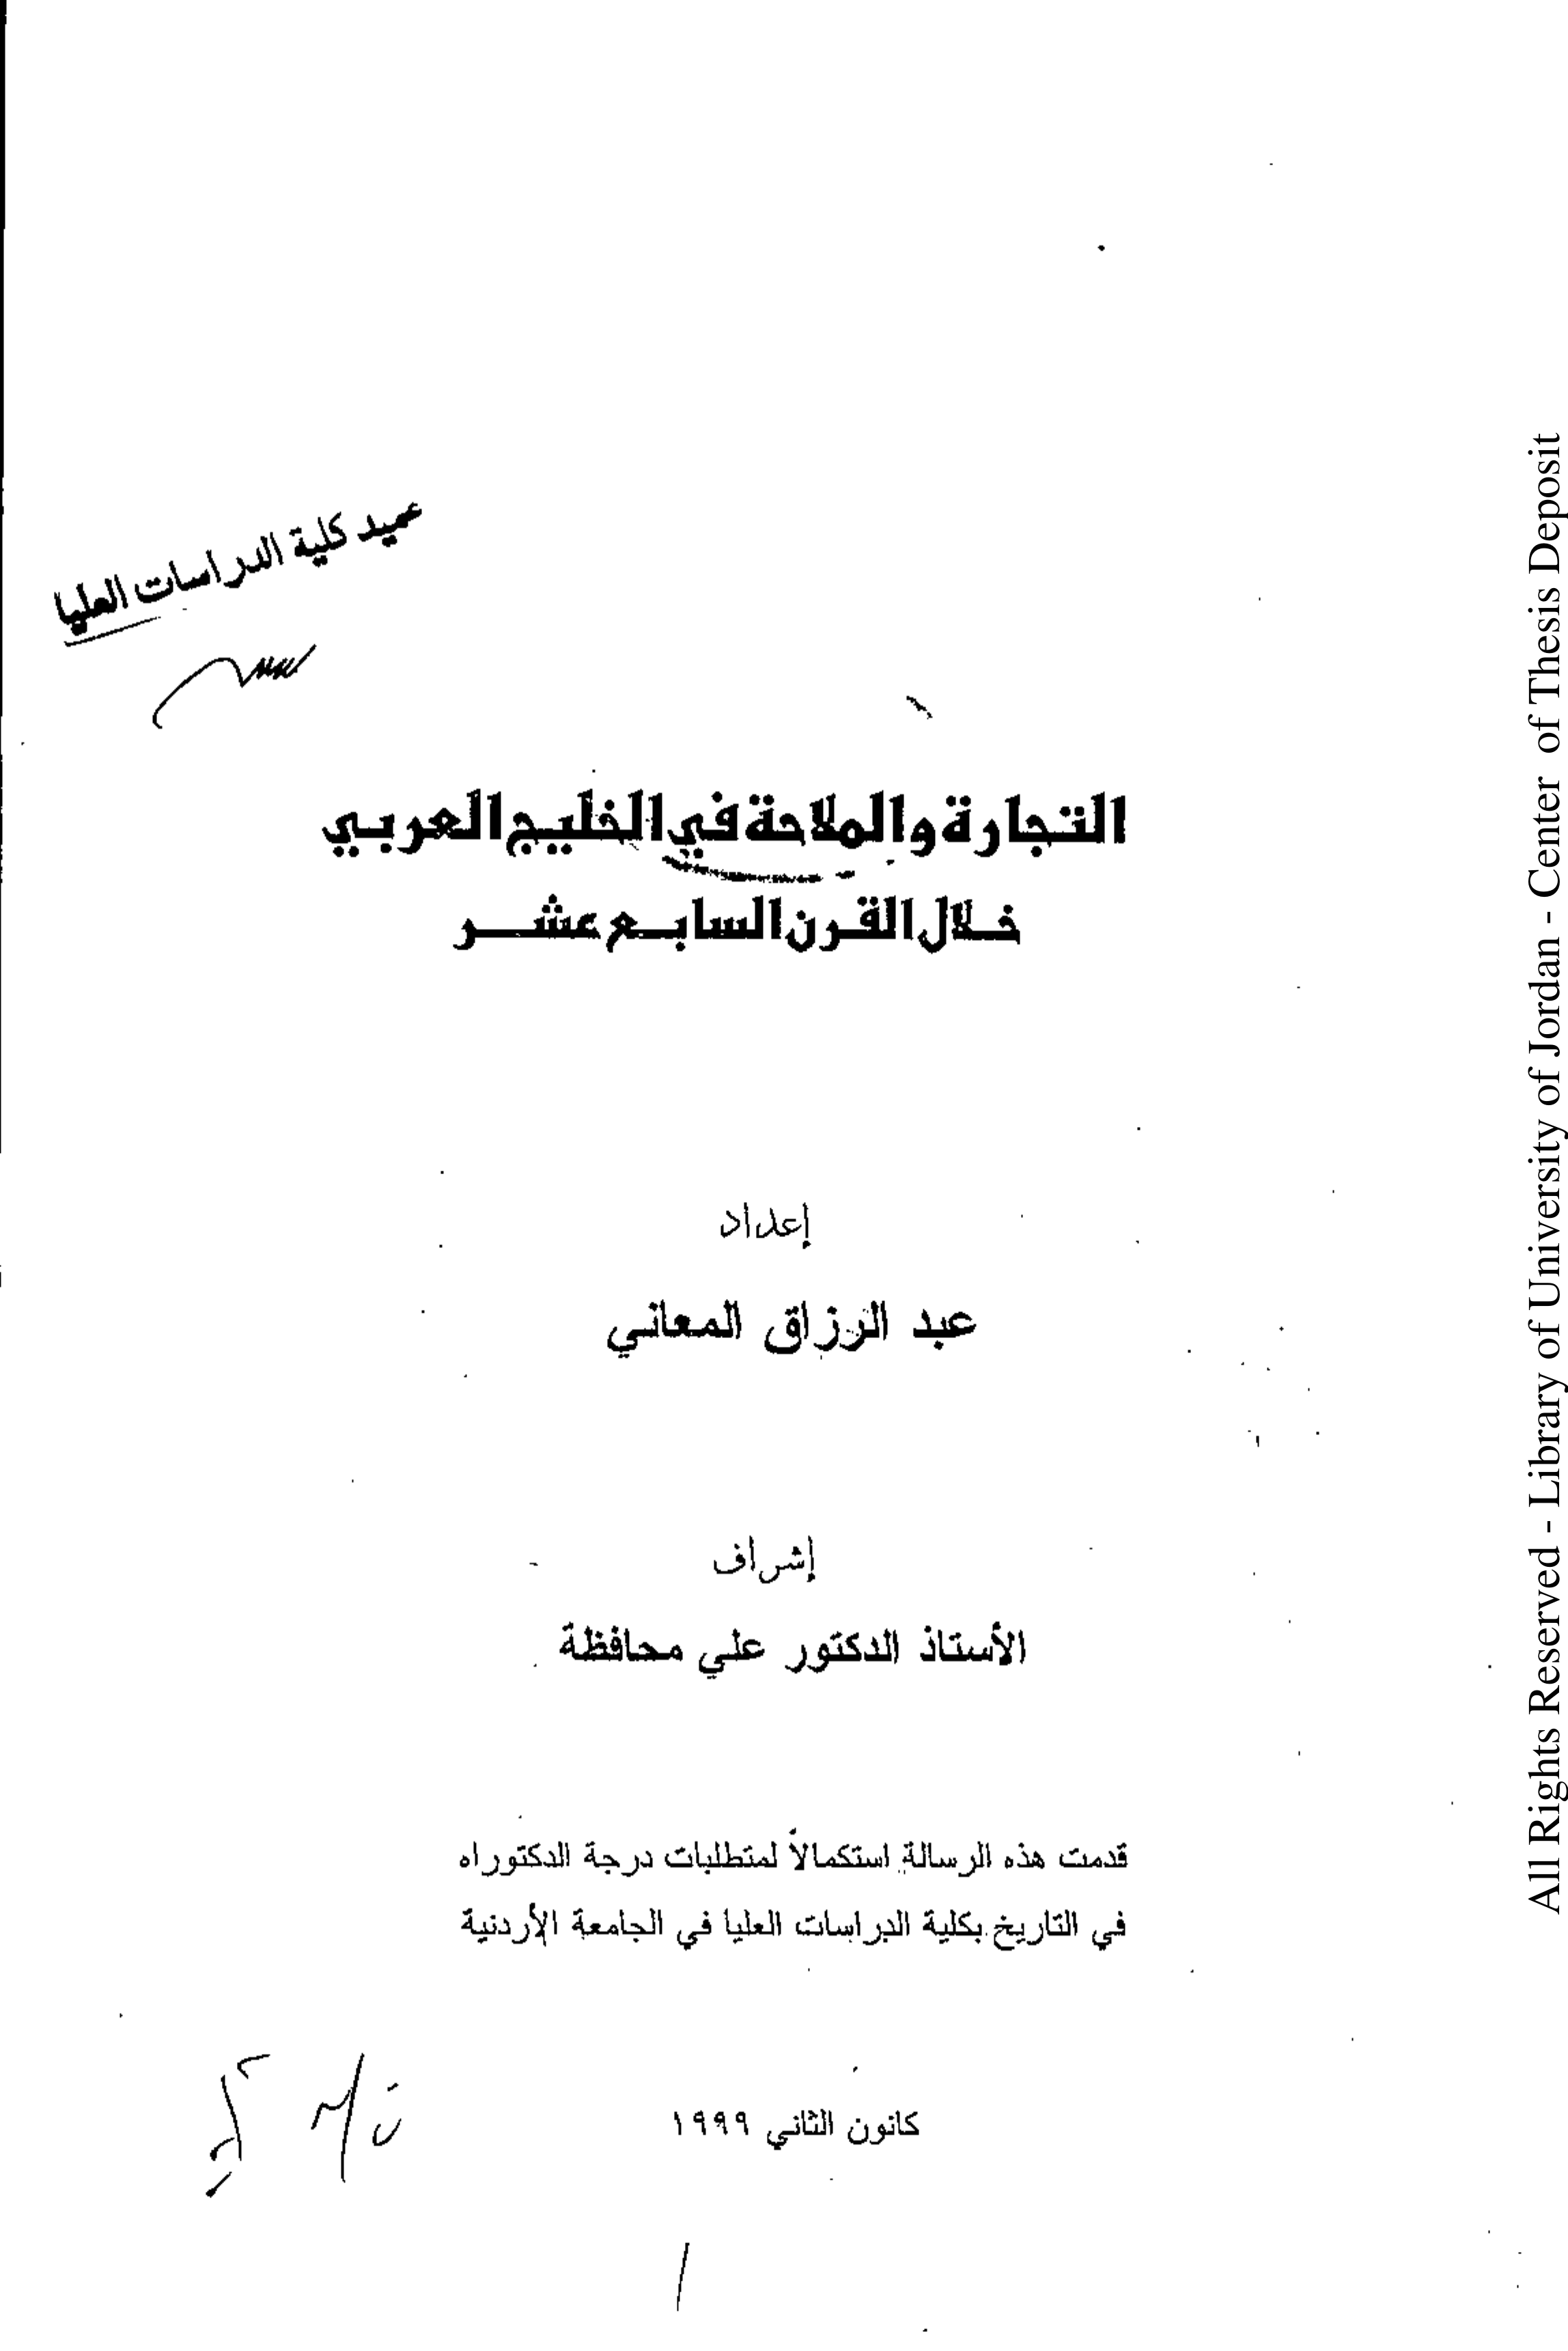 عميد كلية الدراسات العليا
التجارة والملاحة في الخليج العربي
خلال القرن السابع عشر
إعداد
عبد الرزاق المعاني
إشراف
الأستاذ الدكتور علي محافظة
قدمت هذه الرسالة استكمالاً لمتطلبات درجة الدكتوراه
في التاريخ بكلية الدراسات العليا في الجامعة الأردنية
كانون الثاني ١٩٩٩
All Rights Reserved - Library of University of Jordan - Center of Thesis Deposit